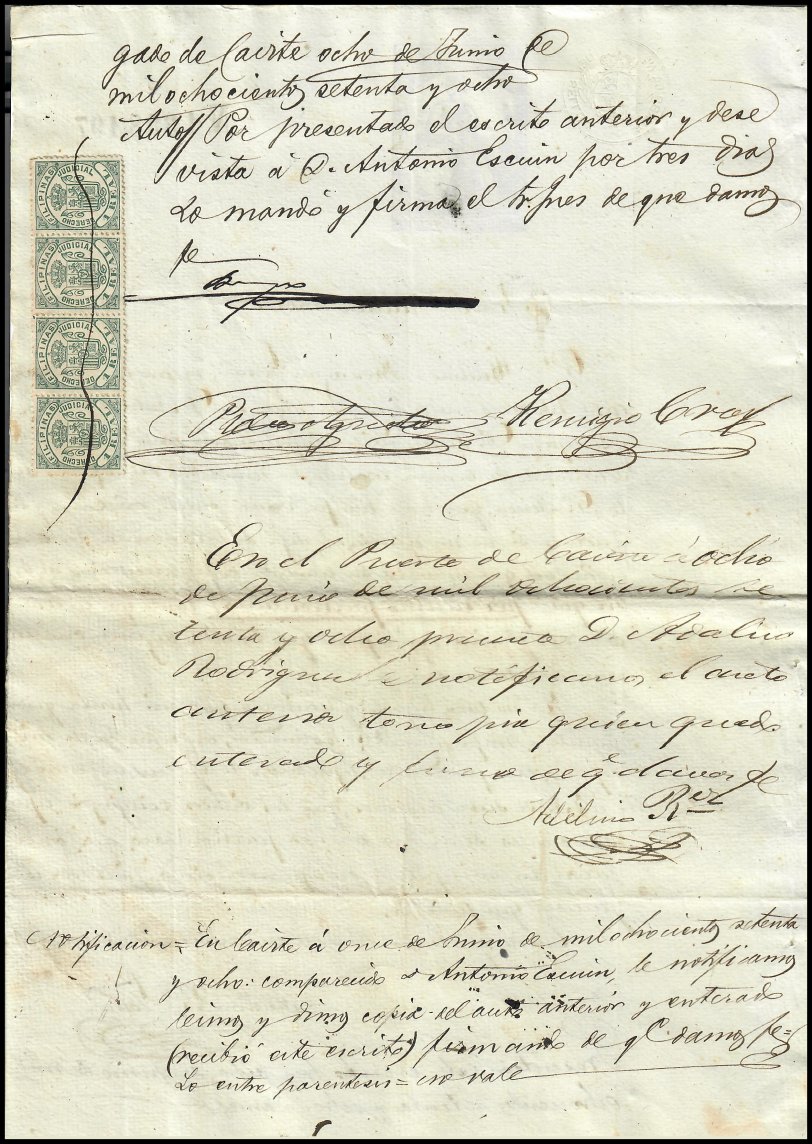 gado de Cavite ocho de Junio de
mil ochocientos setenta y ocho
Auto// Por presentado el escrito anterior y dese
vista á D. Antonio Escuin por tres dias
Lo mandó y firma el Sr. Jues de que damos
fe
FILIPINAS JUDICIAL DERECHO 1 REAL
FILIPINAS JUDICIAL DERECHO 1 REAL
FILIPINAS JUDICIAL DERECHO 1 REAL
FILIPINAS JUDICIAL DERECHO 1 REAL
Remigio Cruz
En el Puerto de Cavite á ocho
de junio de mil ochocientos se
tenta y ocho presente D. Adelino
Rodriguez notificamos el auto
anterior quien quedó
enterado y firma de q. damos fe
Adelino Rez
Notificacion = En Cavite á once de Junio de mil ochocientos setenta
y ocho: comparecido D. Antonio Escuin, le notificamos
leimos y dimos copia del auto anterior y enterado
(recibió este escrito) firmando de q. damos fe=
Lo entre parentesis = no vale